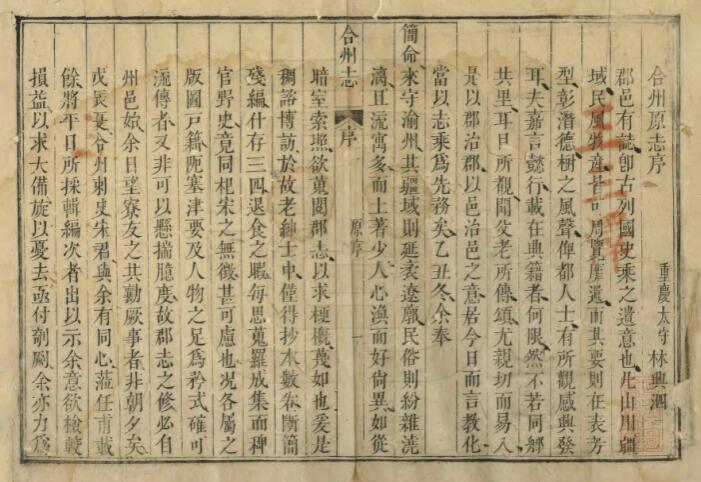 合州原志序
重慶太守林興泗
郡邑有誌卽古列國史乘之遺意也凡山川疆
域民風物產皆可周覽靡遺而其要則在表芳
型彰潛德樹之風聲俾都人士有所觀感興發
耳夫嘉言懿行載在典籍者何限然不若同鄉
共里耳目所觀聞父老所傳頌尤親切而易入
是以郡治郡以邑治邑之意居今日而言教化
當以志乘爲先務矣乙丑冬余奉
簡命來守渝州其疆域則延袤遼廓民俗則紛雜澆
漓且流寓多而土著少人心渙而好尙異如從
合州志
序
原序
一
暗室索照欲蒐閱郡志以求梗槪蔑如也爰是
稠諮博訪於故老紳士中僅得抄本數卷斷簡
殘編什存三四退食之暇每思蒐羅成集而稗
官野史竟同杞宋之無徵甚可慮也况各屬之
版圖戸籍阨塞津要及人物之足爲矜式確可
流傳者又非可以懸揣臆度故郡志之修必自
州邑始余日望寮友之共勷厥事者非朝夕矣
戊辰夏合州刺史宋君與余有同心蒞任甫載
餘將平日所採輯編次者出以示余意欲檢較
損益以求大備旋以憂去亟付剞劂余亦力爲